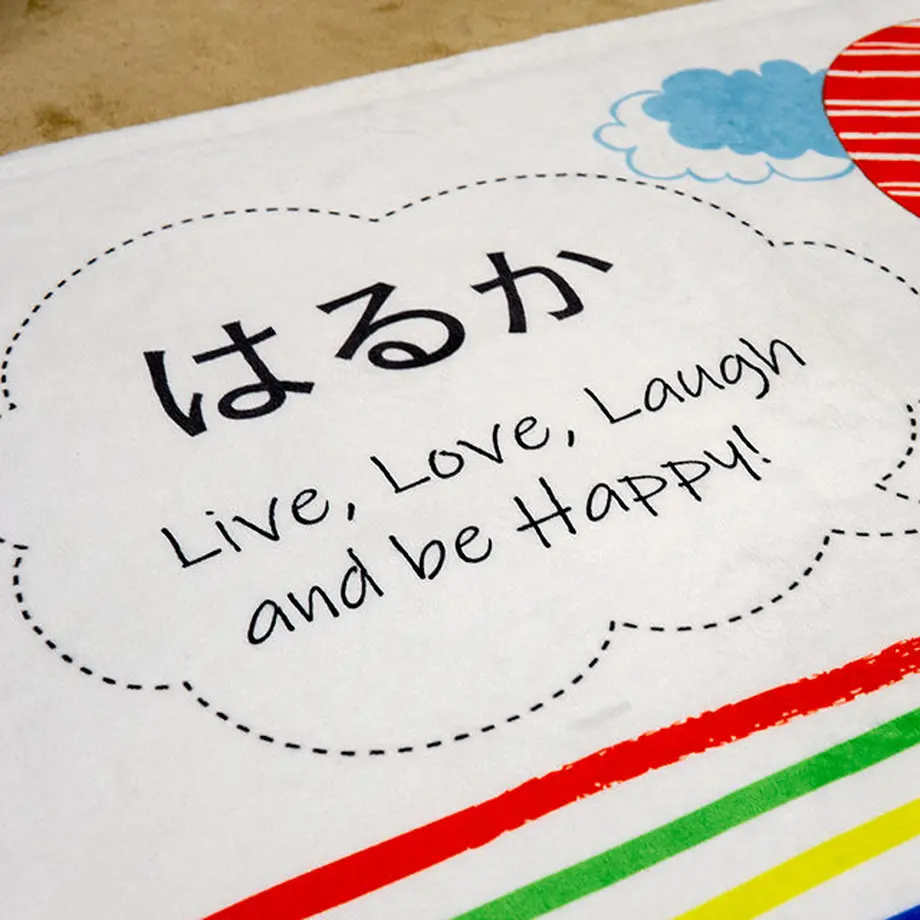 はるか
Live, Love, Laugh
and be Happy!